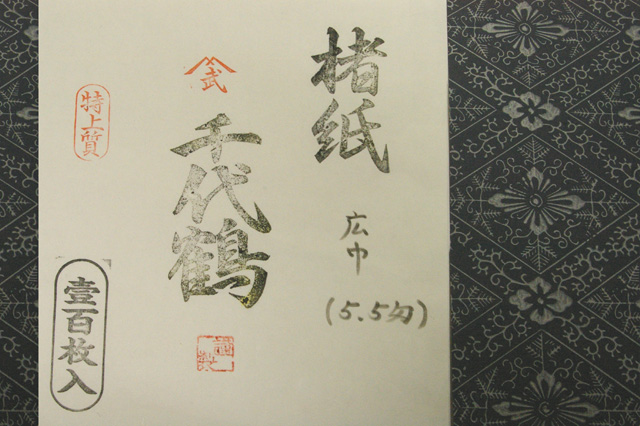 楮紙
広巾
(5.5匁)
武
千代鶴
特上質
壹百枚入